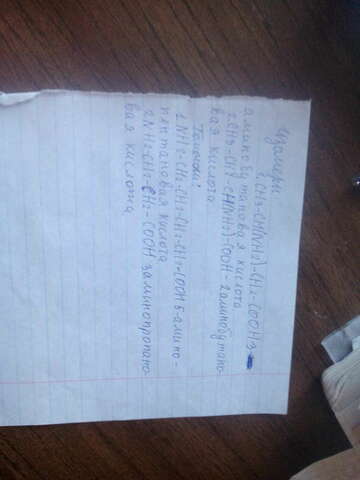 Изомеры
1. CH3-CH(NH2)-CH2-COOH 3-
аминобутановая кислота
2. CH3-CH2-CH(NH2)-COOH-2аминобутано
вая кислота
Гомологи:
1. NH2-CH2-CH2-CH2-CH2-COOH 5-амино-
пентановая кислота
2. NH2-CH2-CH2-COOH 3аминопропано
вая кислота